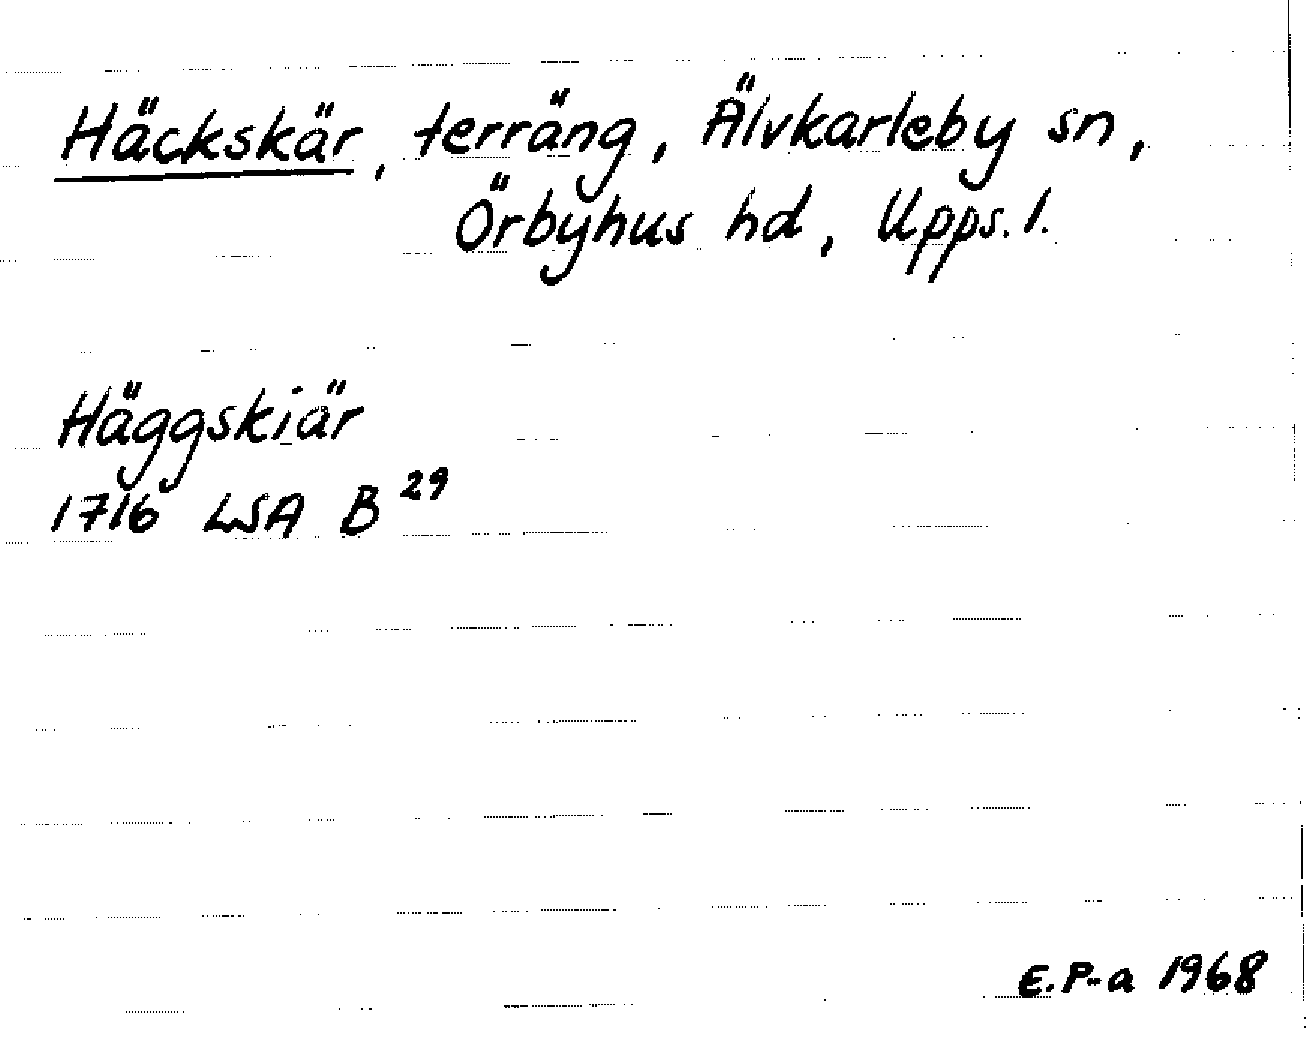 Häckskär, terräng, Älvkarleby sn,
Örbyhus hd, Upps. l.
Häggskiär
1716 LSA B 29
E. P-a 1968